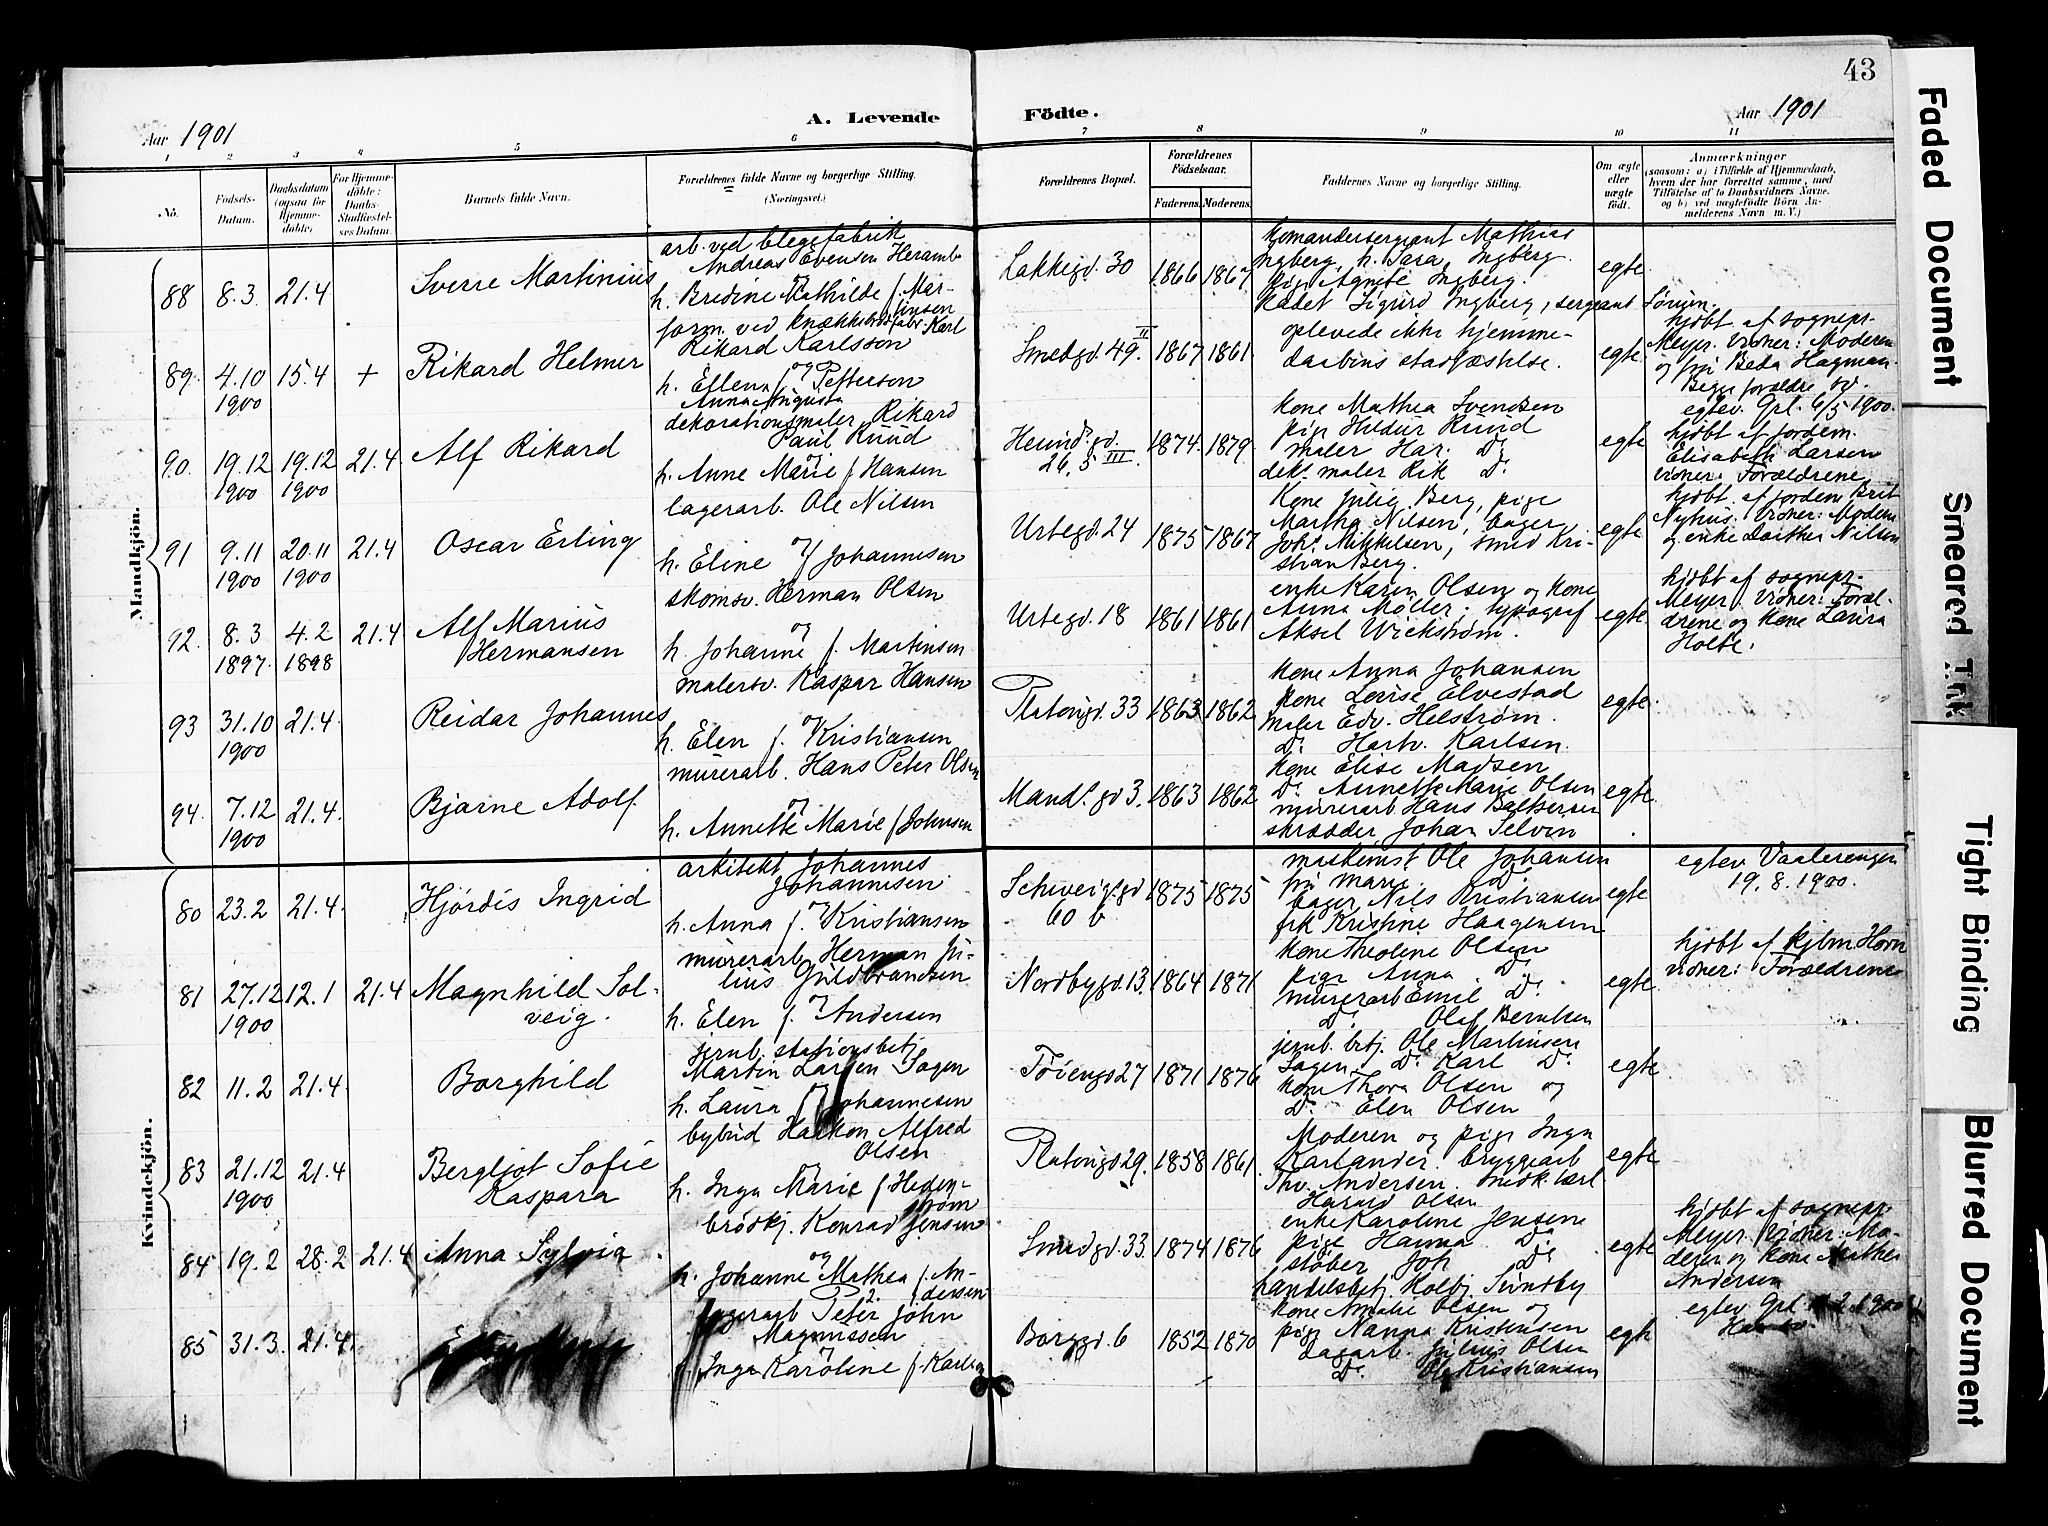 43
Aar 1901
A. Levende
Födte.
Aar 1901
1 2 3 4 5 6 7 8 9 10 11
No.
Födsels-
Datum.
Daabsdatum
(ogsaa for
Hjemme-
döbte)
For Hjemme-
döbte:
Daabs-
Stadfæstel-
ses Datum.
Barnets fulde Navn.
Forældrenes fulde Navne og borgerlige Stilling.
(Næringsvei.)
Forældrenes Bopæl.
Forældrenes
Födselsaar.
Faderens. Moderens.
Faddernes Navne og borgerlige Stilling.
Om ægte
eller
uægte
født.
Anmærkninger
(saasom: a) i Tilfælde af Hjemmedaab,
hvem der har forrettet samme, med
Tilföielse af to Daabsvidners Navne,
og b) ved uægtefödte Börn An-
melderens Navn m. V.)
Mandkjön.
88 8.3. 21.4 Sverre Martinius
arb. ved blegefabrik
Andreas Evensen Heramb
og
h. Bredine Mathilde f. Mar-
tinsen
Lakkegd. 30 1866 1867
Komandersergeant Mathias
Ingberg, h. Sara Ingberg.
pige Agnete Ingberg.
Kadet Sigurd Ingberg, sergeant Sørum.
egte
89. 4.10 15.4 + Rikard Helmer
1900
form. ved knækkebrødfabr. Karl
Rikard Karlsson
og
h. Ellen f. Petterson
Anna Augusta
Smedgd. 49 II 1867 1861
oplevede ikke hjemme-
daabens stadfæstelse.
egte
hjdbt. af sognepr.
Meyer. Vidner: Moderen
og frk Beda Hagman.
egtev. Grl. 6/5 1900.
90. 19.12 19.12 21.4 Alf Rikard
1900 1900
dekorationsmaler Rikard
Paul Ruud
og
h. Anne Marie f. Hansen
Heimd. gd.
26.5 III. 1874. 1879.
Kone Mathea Svendsen
pige Huldur Ruud
maler Har. Do
dek. maler Rik Do
egte
hjdbt af jordem.
Elisabeth Larsen
Vidner: Forældrene
91 9.11 20.11 21.4 Oscar Erling
1900 1900
lagerarb. Ole Nilsen
og
h. Eline f. Johannesen
Urtegd. 24 1875 1867
Kone Julie Berg, pige
Martha Nilsen, bager
Johs. Mikkelsen, smed Kri-
stian Berg.
egte
hjdbt. af jordem Brit
Nyhus. Vidner: Moderen
og enke Dorthea Nilsen
92. 8.3 4.2 21.4 Alf Marius
1897. 1898 Hermansen
skomsv. Herman Olsen
og
h. Johanne f. Martinsen
Urtegd. 18 1861 1861
enke Karen Olsen og Kone
Anna Möller; typograf
Aksel Wickstrøm.
egte
hjdbt af sognepr.
Meyer. Vidner: Foræl-
drene og kone Laura
Holte.
93 31.10 21.4. Reidar Johannes
1900
malersv. Kaspar Hansen
og
h. Elen f. Kristiansen
Platougd. 33 1863 1862
Kone Anna Johansen
Kone Lovise Elvestad
maler Edv. Helstrøm.
Do Hartv. Karlsen.
egte
94. 7.12 21.4. Bjarne Adolf
1900
murerarb. Hans Peter Olsen
og
h. Annette Marie f. Johnsen
Mands. gd 3. 1863 1862
Kone Elise Madsen
Do Annette Marie Olsen
murerarb Hans Baltsersen
skrædder Johan Selven
egte.
Kvindekjön.
80 23.2 21.4. Hjördis Ingrid
arkitekt Johannes
Johannesen
og
h. Anna f. Kristiansen
Schweigsgd
60 b 1875 1875
maskinist Ole Johansen
frk Marie Do
bager Nils Kristiansen
frk Kristine Haagensen
egte
egtev Vaalerengen
19.8.1900.
81 27.12 12.1 21.4 Magnhild Sol-
1900 veig.
murerarb. Herman Ju-
lius Guldbrandsen
og
h. Elen f. Andersen
Nordbygd. 13. 1864 1871
Kone Theoline Olsen
pige Anna Do
murerarb Emil Do
Do Olaf Berntsen
egte
hjdbt af
Vidner: Forældrene
82 11.2 21.4. Borghild
jernb. stationsbetj.
Martin Larsen Sagen
og
h. Laura f. Johannesen
Töiengd 27 1871 1876
jernb. betj. Ole Martinsen
Sagen Do Karl Do
Kone Thora Olsen og
Do Elen Olsen
egte
83 21.12 21.4 Bergljot Sofie
1900 Kaspara
bybud Haakon Alfred
Olsen
og
h. Inga Marie f. Heden-
strøm
Platougd 29. 1858 1861.
Moderen og pige Inga
Karlander. bryggearb
Thv. Andersen. snedk. lærl.
Harald Olsen
egte
84 19.2 28.2 21.4 Anna Sylvia
brödkj. Konrad Jensen
og
h. Johanne Mathea f. An-
dersen
Smedgd. 33. 1874 1876
enke Karoline Jensen
pige Hanna Do
støber Joh Do
handelsbetj. Holbj. Sundby
egte
hjdbt af sognepr
Meyer. Vidner: Mo-
deren og Kone Mathea
Andersen
85 31.3. 21.4.
lagerarb Peter John
Magnussen
og
h. Inga Karoline f. Karlsen
Borggd. 6 1852 1870
Kone Amalie Olsen og
pige Nanna Kristensen
dagarb. Julius Olsen
Do Ole Kristiansen
egte
egtev. Grl.
Faded Document
Smeared Ink
Tight Binding
Blurred Document